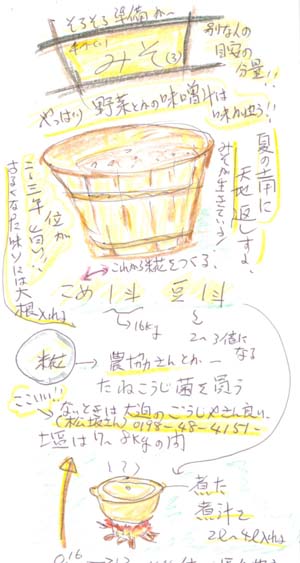 そろそろ準備が〜
手づくり
みそ(3)
別な人の
目安の
分量!!
やっぱり野菜とかの味噌汁は
味が出る!!
夏の土用に
天地返しする、
みそが生きている!
二〜三年位が
旨い!!
なった味ソには大根入れる
これから糀をつくる、
こめ1斗 豆1斗
16kg
2〜3倍に
なる
糀 → 農協さんとか
たねこうじ菌を買う
ここいい!!
ないときは大迫のこうじやさん良い
(松坂さん) 0198-48-4151-
塩は7〜8kgの間
(?)
煮た
煮汁を
2ℓ〜4ℓ入れる